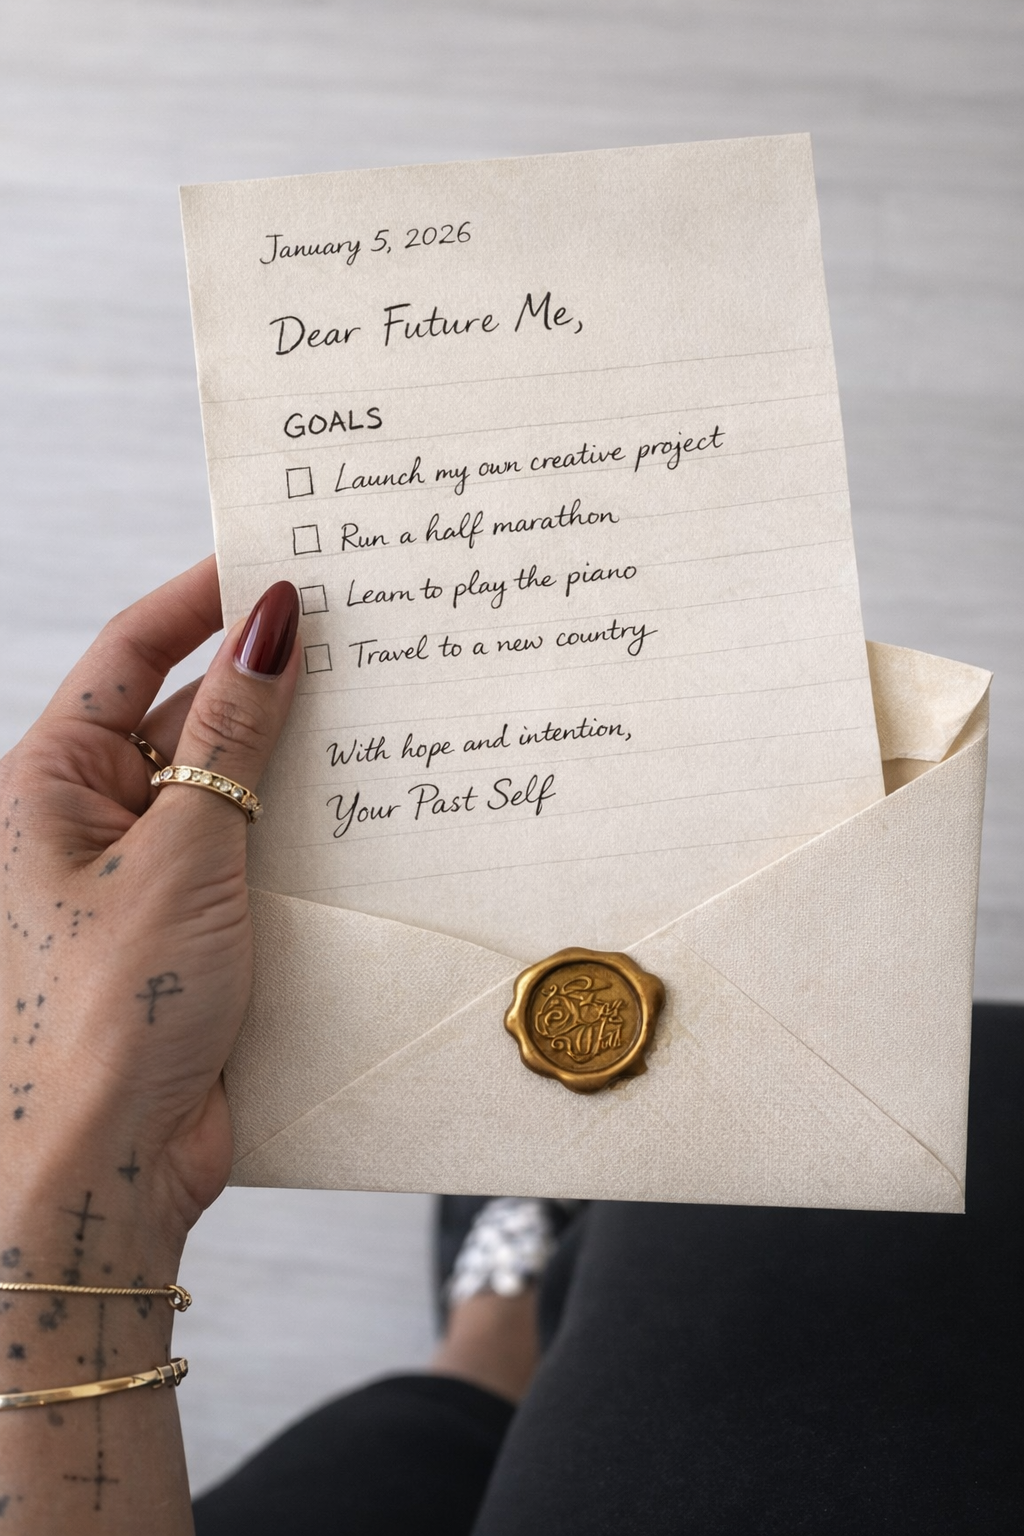 January 5, 2026
Dear Future Me,
GOALS
Launch my own creative project
Run a half marathon
Learn to play the piano
Travel to a new country
With hope and intention,
Your Past Self